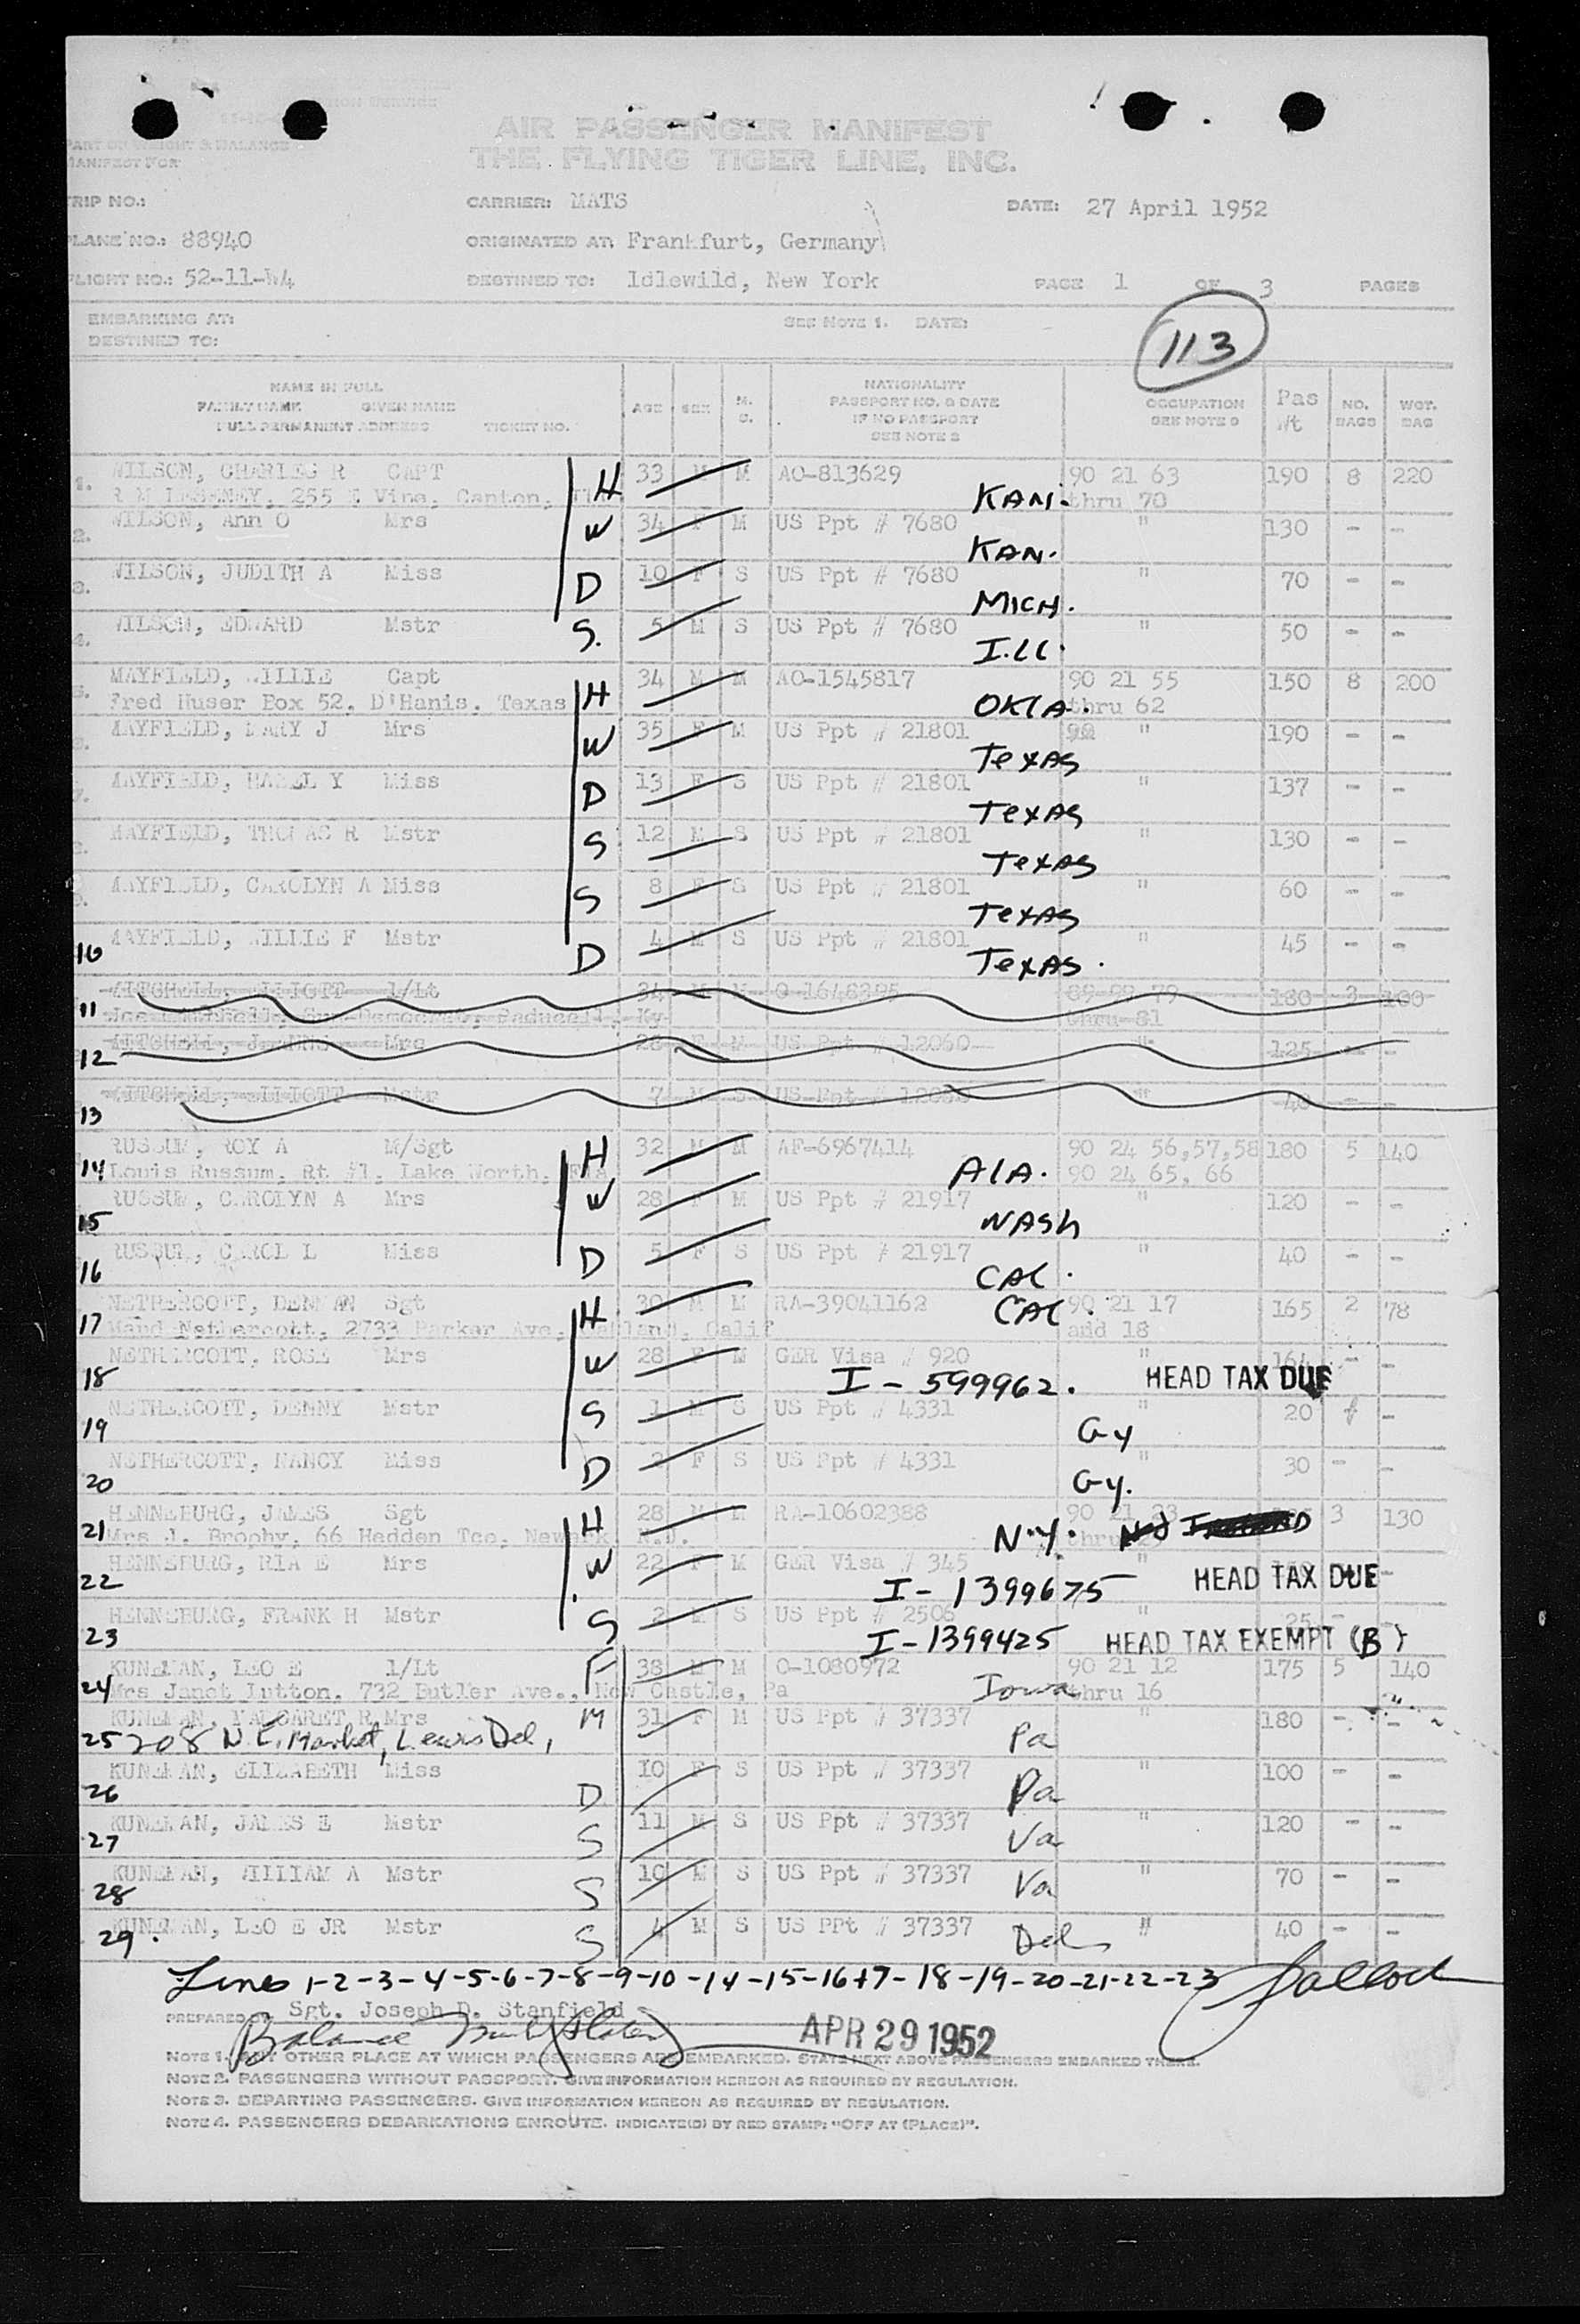 AIR PASSENGER MANIFEST
THE FLYING TIGER LINE, INC.
PART OF WEIGHT & BALANCE
MANIFEST FOR
TRIP NO.: CARRIER: MATS DATE: 27 April 1952
PLANE NO.: 88940 ORIGINATED AT: Frankfurt, Germany
FLIGHT NO.: 52-11-W4 DESTINED TO: Idlewild, New York PAGE 1 OF 3 PAGES
EMBARKING AT: SEE NOTE 1. DATE:
DESTINED TO:
113
NAME IN FULL
FAMILY NAME GIVEN NAME
FULL PERMANENT ADDRESS TICKET NO. AGE SEX M. S. NATIONALITY PASSPORT NO. & DATE IF NO PASSPORT SEE NOTE 2 OCCUPATION SEE NOTE 3 Pas Wt NO. BAGS WGT. BAG
1. WILSON, CHARLES R CAPT H 33 M M AO-813629 90 21 63 190 8 220
255 E Vine, Canton, KAN. thru 70
2. WILSON, Ann O Mrs W 34 F M US Ppt # 7680 " 130 - -
KAN.
3. WILSON, JUDITH A Miss D 10 F S US Ppt # 7680 " 70 - -
MICH.
4. WILSON, EDWARD Mstr S. 5 M S US Ppt # 7680 " 50 - -
ILL.
5. MAYFIELD, WILLIE Capt H 34 M M AO-1545817 90 21 55 150 8 200
Fred Huser Box 52, D'Hanis, Texas OKLA. thru 62
6. MAYFIELD, MARY J Mrs W 35 F M US Ppt # 21801 " 190 - -
TexAS
7. MAYFIELD, HAZEL Y Miss D 13 F S US Ppt # 21801 " 137 - -
TexAS
8. MAYFIELD, THOMAS R Mstr S 12 M S US Ppt # 21801 " 130 - -
TexAS
9. MAYFIELD, CAROLYN A Miss S 8 F S US Ppt # 21801 " 60 - -
TexAS
10 MAYFIELD, WILLIE F Mstr D 4 M S US Ppt # 21801 " 45 - -
TexAS.
11 MITCHELL, ELLIOTT 1/Lt 34 M M O-1648395 89 99 79 180 3 100
Paducah, Ky thru 81
12 MITCHELL, Mrs 28 F M US Ppt # 12060 " 125 - -
13 MITCHELL, ELLIOTT Mstr 7 M S US Ppt # " 40 - -
14 RUSSUM, ROY A M/Sgt H 32 M M AF-6967414 90 24 56,57,58 180 5 140
Louis Russum, Rt #1, Lake Worth, Fla ALA. 90 24 65, 66
15 RUSSUM, CAROLYN A Mrs W 28 F M US Ppt # 21917 " 120 - -
WASH
16 RUSSUM, CAROL L Miss D 5 F S US Ppt # 21917 " 40 - -
CAL.
17 NETHERCOTT, DENMAN Sgt H 30 M M RA-39041162 CAL. 90 21 17 165 2 78
Maud Nethercott, 2733 Parker Ave, Oakland, Calif and 18
18 NETHERCOTT, ROSE Mrs W 28 F M GER Visa # 920 " 164 - -
I-599962. HEAD TAX DUE
19 NETHERCOTT, DENNY Mstr S 1 M S US Ppt # 4331 " 20 -
Gy
20 NETHERCOTT, NANCY Miss D 2 F S US Ppt # 4331 " 30 - -
Gy.
21 HENNEBURG, JAMES Sgt H 28 M M RA-10602388 90 21 23 3 130
Mrs J. Brophy, 66 Hedden Tce, Newark, N.J. N.Y. thru
22 HENNEBURG, RIA E Mrs W 22 F M GER Visa # 345 " -
I-1399675 HEAD TAX DUE
23 HENNEBURG, FRANK H Mstr S 2 M S US Ppt # 2506 " 25 -
I-1399425 HEAD TAX EXEMPT (B)
24 KUNEMAN, LEO E 1/Lt F 38 M M O-1080972 90 21 12 175 5 140
Mrs Janet Lutton, 732 Butler Ave., New Castle, Pa Iowa thru 16
25 KUNEMAN, MARGARET R Mrs M 31 F M US Ppt # 37337 " 180 - -
208 N.E. Market, Lewis Del, Pa
26 KUNEMAN, ELIZABETH Miss D 10 F S US Ppt # 37337 " 100 - -
Pa
27 KUNEMAN, JAMES E Mstr S 11 M S US Ppt # 37337 " 120 - -
Va
28 KUNEMAN, WILLIAM A Mstr S 10 M S US Ppt # 37337 " 70 - -
Va
29. KUNEMAN, LEO E JR Mstr S 4 M S US PPt # 37337 " 40 - -
Del
Lines 1-2-3-4-5-6-7-8-9-10-14-15-16+7-18-19-20-21-22-23
PREPARED BY Sgt. Joseph D. Stanfield
Balance
APR 29 1952
NOTE 1. ANY OTHER PLACE AT WHICH PASSENGERS ARE EMBARKED. STATE NEXT ABOVE PASSENGERS EMBARKED THERE.
NOTE 2. PASSENGERS WITHOUT PASSPORT. GIVE INFORMATION HEREON AS REQUIRED BY REGULATION.
NOTE 3. DEPARTING PASSENGERS. GIVE INFORMATION HEREON AS REQUIRED BY REGULATION.
NOTE 4. PASSENGERS DEBARKATIONS ENROUTE. INDICATE(S) BY RED STAMP: "OFF AT (PLACE)".